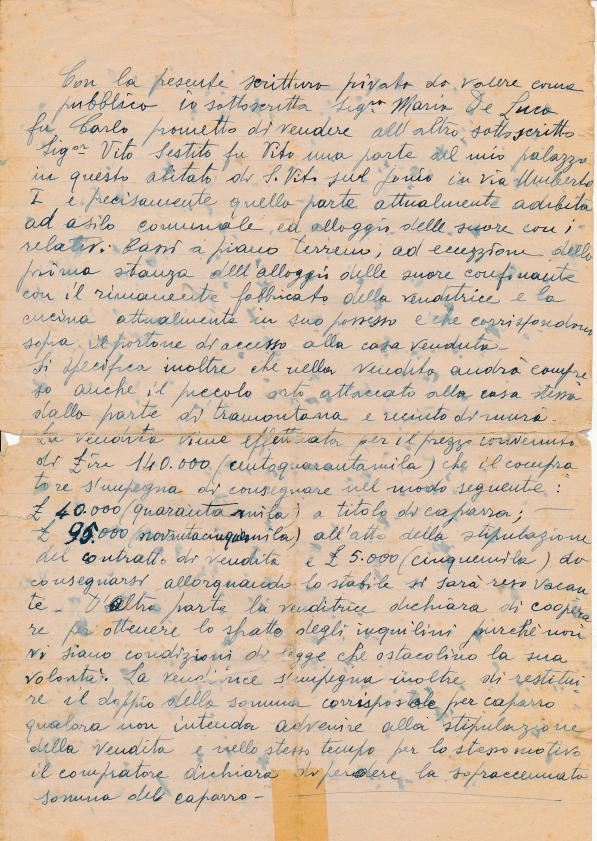 Con la presente scrittura privata da valere come
pubblica io sottoscritta Sig.ra Maria De Luca
fu Carlo prometto di vendere all'altro sottoscritto
Sig.or Vito Sestito fu Vito una parte del mio palazzo
in questo abitato di S. Vito sul Jonio in via Umberto
I e precisamente quella parte attualmente adibita
ad asilo comunale ed alloggio delle suore con i
relativi bassi a piano terreno, ad eccezzione della
prima stanza dell'alloggio delle suore confinante
con il rimanente fabbricato della venditrice e la
cucina attualmente in suo possesso e che corrispondono
sopra il portone di accesso alla casa venduta.
Si specifica inoltre che nella vendita andrà compre
so anche il piccolo orto attaccato alla casa stessa
dalla parte di tramontana e recinto di mura.
La vendita viene effettuata per il prezzo convenuto
di £ire 140.000 (centoquarantamila) che il compra
tore s'impegna di consegnare nel modo seguente:
£ 40.000 (quarantamila) a titolo di caparra;
£ 95.000 (novantacinquemila) all'atto della stipulazione
del contratto di vendita e £ 5.000 (cinquemila) da
consegnarsi allorquando lo stabile si sarà reso vacan
te - D'altra parte la venditrice dichiara di coopera
re per ottenere lo sfratto degli inquilini purché non
vi siano condizioni di legge che ostacolino la sua
volontà. La venditrice s'impegna inoltre di restitui
re il doppio della somma corrispostale per caparra
qualora non intenda advenire alla stipulazione
della vendita e nello stesso tempo per lo stesso motivo
il compratore dichiara di perdere la sopraccennata
somma del caparro -